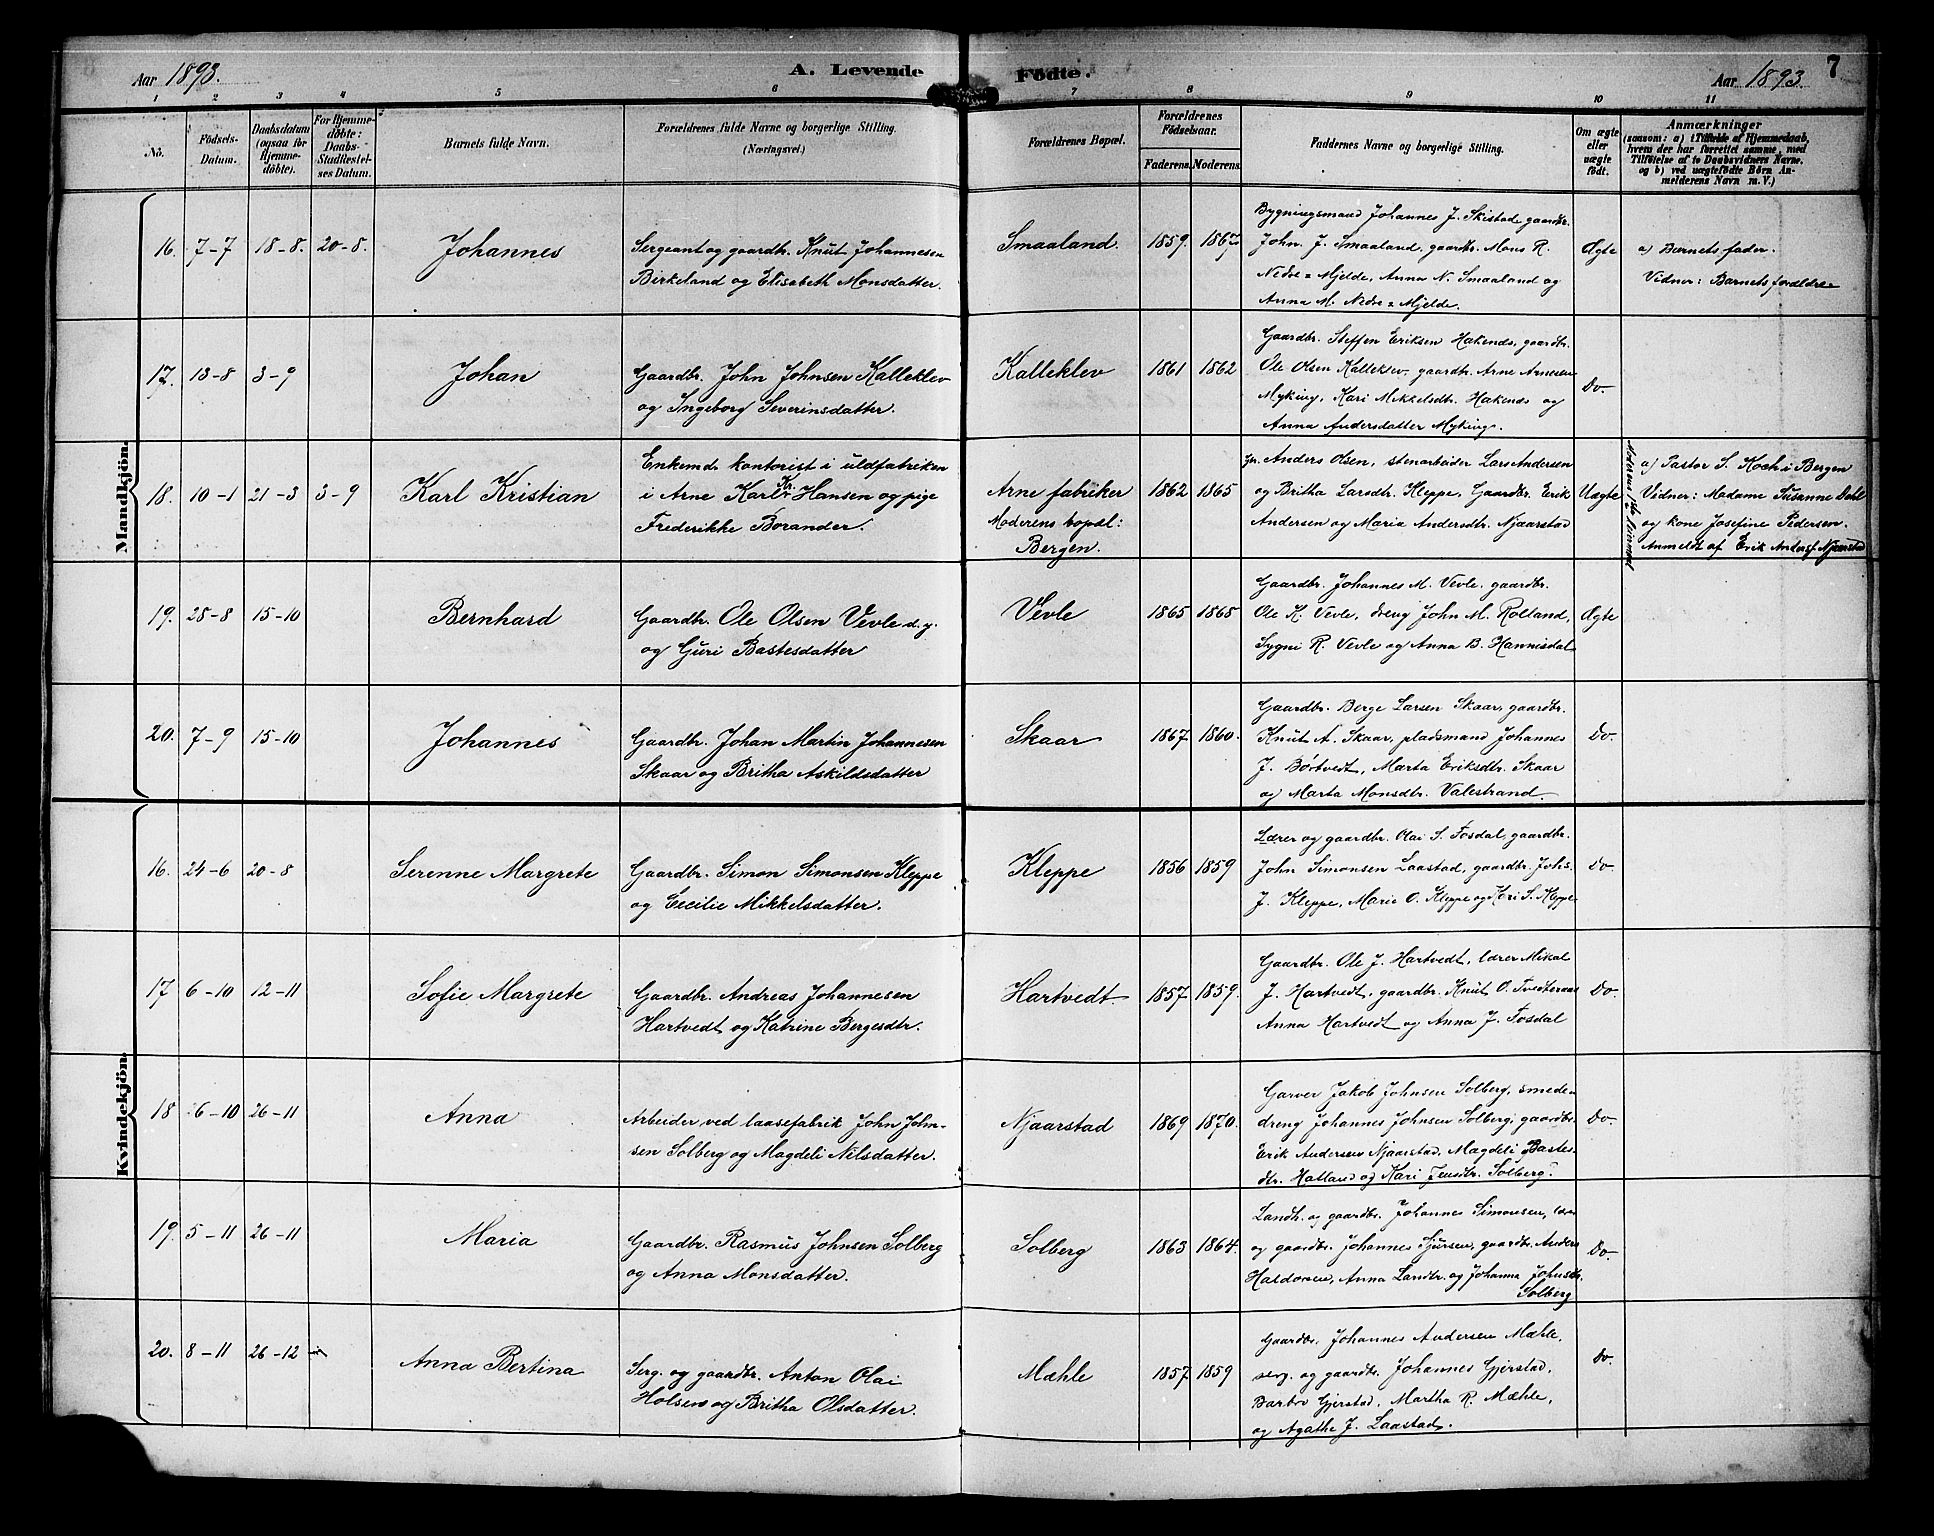 Aar 1893.
A. Levende Fødte.
Aar 1893.
7
1 2 3 4 5 6 7 8 9 10 11
No.
Fødsels-
Datum.
Daabsdatum
(ogsaa for
Hjemme-
døbte).
For Hjemme-
døbte:
Daabs-
Stadfestel-
ses Datum.
Barnets fulde Navn.
Forældrenes fulde Navne og borgerlige Stilling.
(Næringsvei.)
Forældrenes Bopæl.
Forældrenes
Fødselsaar.
Faderens. Moderens.
Faddernes Navne og borgerlige Stilling.
Om ægte
eller
uægte
født.
Anmærkninger
(saasom: a) i Tilfælde af Hjemmedaab,
hvem der har forrettet samme, med
Tilføielse af to Daabsvidners Navne,
og b) ved uægtefødte Børn An-
melderens Navn m. V.)
Mandkjön.
16. 7-7 18-8. 20-8. Johannes
Sergeant og gaardbr. Knut Johannesen
Birkeland og Elisabeth Monsdatter.
Smaaland. 1859. 1867
Bygningsmand Johannes J. Skistad, gaardbr.
John. J. Smaaland, gaardbr. Mons R.
Nedre=Mjelde, Anna N. Smaaland og
Anna M. Nedre=Mjelde.
Ægte
a) Barnets fader.
Vidner: Barnets forældre
17. 13-8 3-9 Johan
Gaardbr. John Johnsen Kalleklev
og Ingeborg Severinsdatter.
Kalleklev 1861 1862
Gaardbr. Steffen Eriksen Hakenes, gaardbr.
Ole Olsen Kalleklev, gaardbr. Arne Arnesen
Myking, Kari Mikkelsdtr. Hakenes og
Anna Andersdatter Myking.
Do.
18. 10-1 21-3 3-9 Karl Kristian
Enkemd. kontorist i uldfabriken
i Arne Karl Kr. Hansen og pige
Frederikke Borander.
Arne fabriker
Moderens bopæl:
Bergen.
1862 1865
Anders Olsen, stenarbeider Lars Andersen
og Britha Larsdtr. Kleppe, Gaardbr. Erik
Andersen og Maria Andersdtr. Njaarstad
Uægte
a) Pastor S. Koch i Bergen
Vidner: Madame Susanne Dahl
og kone Josefine Pedersen.
Anmeldt af Erik Anders. Njaarstad
19. 28-8 15-10 Bernhard
Gaardbr. Ole Olsen Vevle d. y.
og Guri Bastesdatter
Vevle 1865 1868
Gaardbr. Johannes M. Vevle, gaardbr.
Ole K. Vevle, dreng John M. Rolland,
Sygni R. Vevle og Anna B. Hannisdal
Ægte
20. 7-9 15-10 Johannes
Gaardbr. Johan Martin Johannesen
Skaar og Britha Askildsdatter
Skaar 1867 1860.
Gaardbr. Berge Larsen Skaar, gaardbr.
Knut A. Skaar, pladsmand Johannes
J. Børtvedt, Marta Eriksdtr. Skaar
og Marta Monsdtr. Valestrand.
Do.
Kvindekjön.
16. 24-6 20-8 Serenne Margrete
Gaardbr. Simon Simonsen Kleppe
og Cecilie Mikkelsdatter.
Kleppe 1856 1859
Lærer og gaardbr. Olai S. Fosdal, gaardbr.
John Simonsen Laastad, gaardbr. Johs.
J. Kleppe, Marie O. Kleppe og Kari S. Kleppe
Do.
17 6-10 12-11 Sofie Margrete
Gaardbr. Andreas Johannesen
Hartvedt og Katrine Bergesdtr.
Hartvedt 1857. 1859.
Gaardbr. Ole J. Hartvedt, lærer Mikal
J. Hartvedt, gaardbr. Knut O. Tvedteraas
Anna Hartvedt og Anna J. Fosdal
Do.
18 26-10 26-11 Anna
Arbeider ved laasefabrik John John-
sen Solberg og Magdeli Nilsdatter.
Njaarstad 1869 1870.
Garver Jakob Johnsen Solberg, smede-
dreng Johannes Johnsen Solberg, gaardbr.
Erik Andersen Njaarstad, Magdeli Bastes-
dtr. Hatland og Kari Jensdtr. Solberg.
Do.
19. 5-11 26-11 Maria
Gaardbr. Rasmus Johnsen Solberg
og Anna Monsdatter.
Solberg 1863 1864.
Landh. og gaardbr. Johannes Simonsen,
og gaardbr. Johannes Sjursen, gaardbr. Anders
Haldorsen, Anna Landbr. og Johanna Johnsdtr.
Solberg
Do.
20. 8-11 26-12 Anna Bertina
Serg. og gaardbr. Anton Olai
Holsen og Britha Olsdatter.
Mæhle 1857 1859
Gaardbr. Johannes Andersen Mæhle,
serg. og gaardbr. Johannes Gjerstad,
Barbro Gjerstad, Martha R. Mæhle,
og Agathe J. Laastad.
Do.